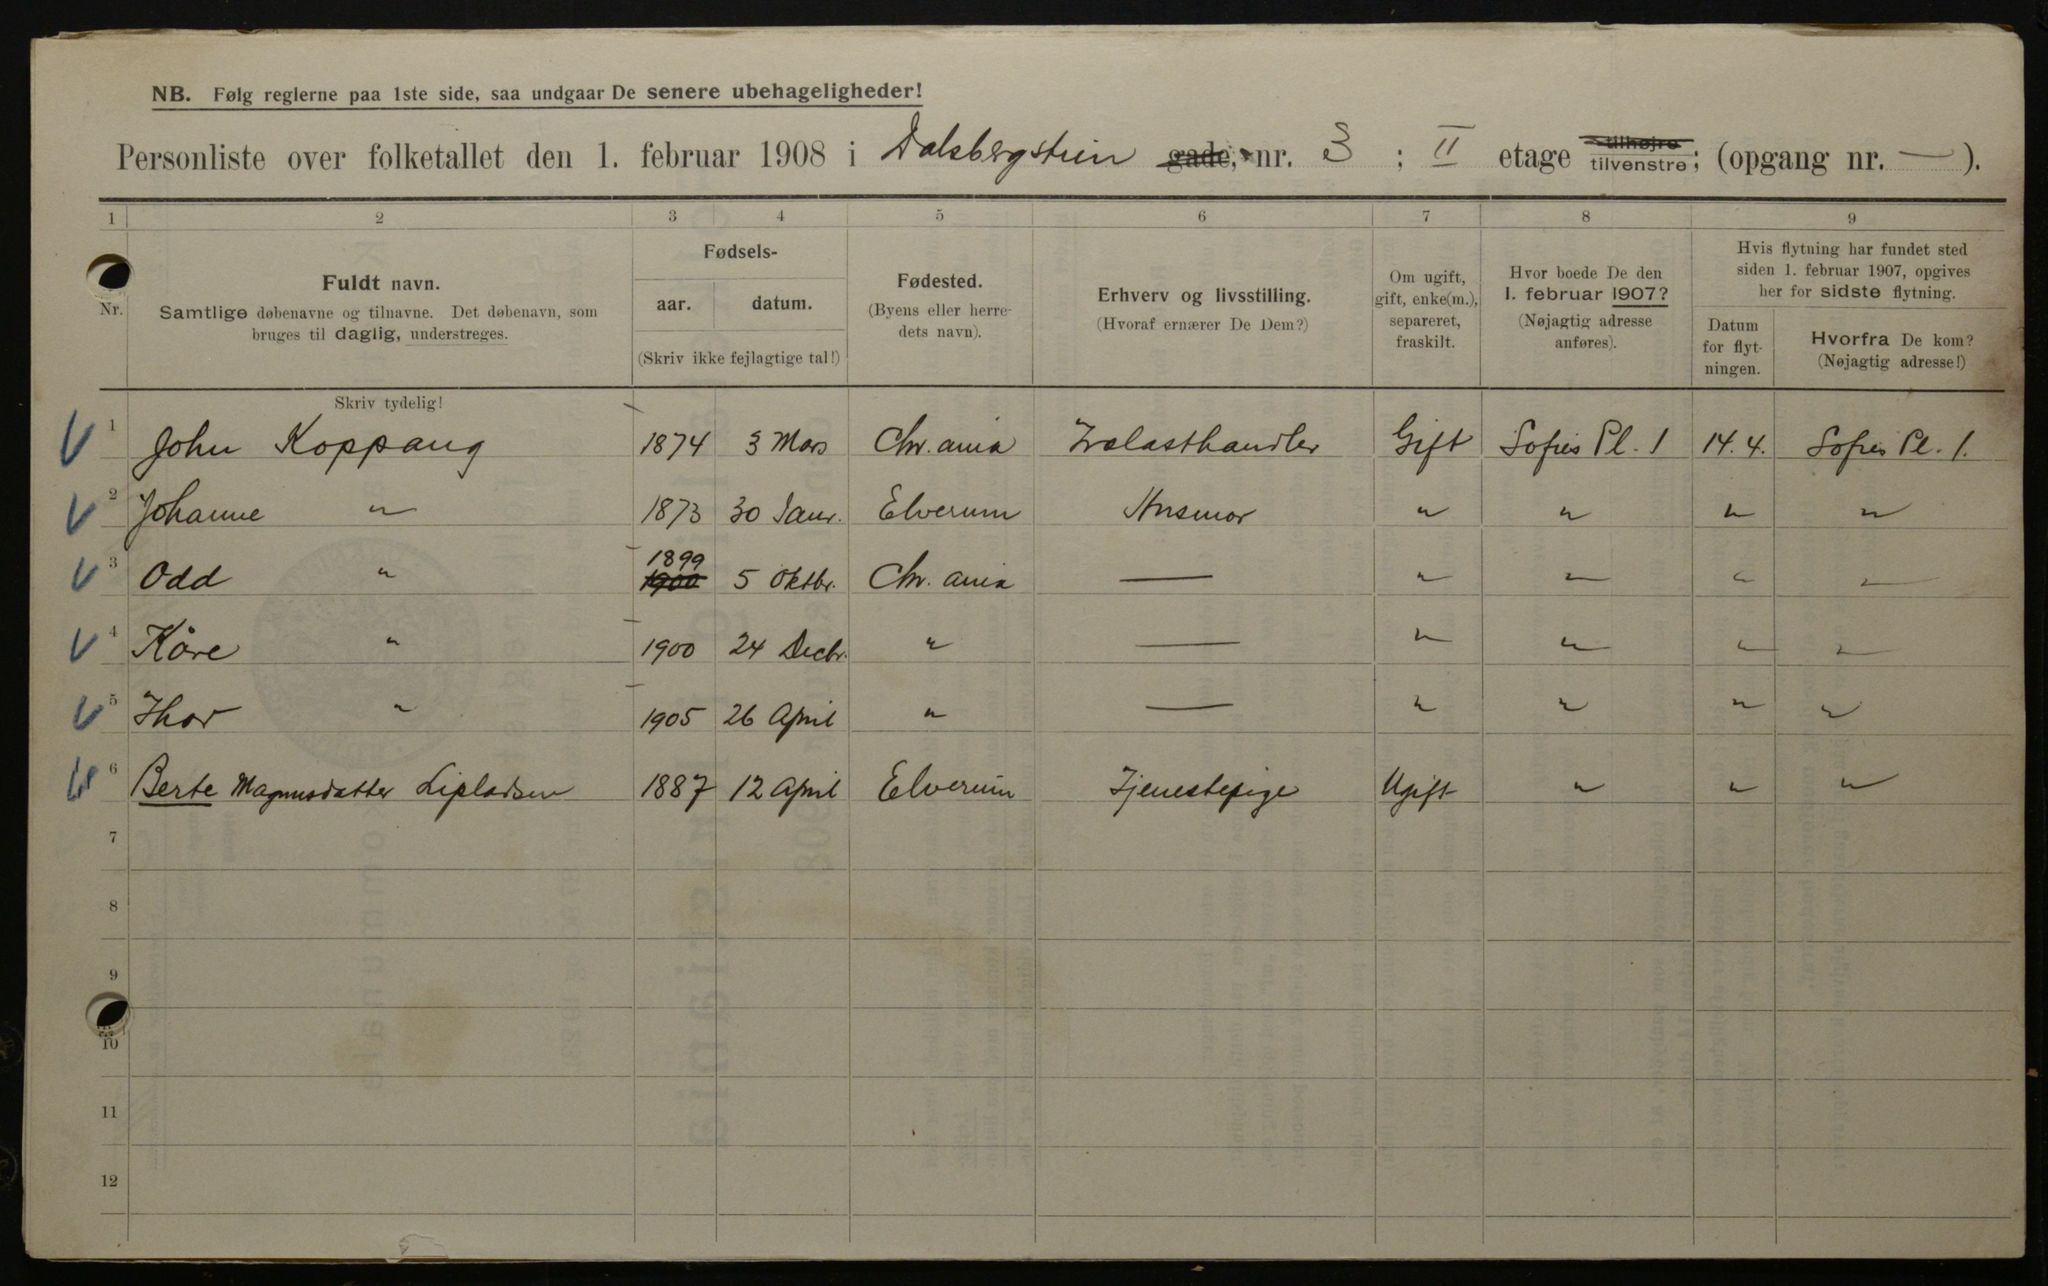 NB. Følg reglerne paa 1ste side, saa undgaar De senere ubehageligheder!
Personliste over folketallet den 1. februar 1908 i Dalsbergstien gade, nr. 3 ; II etage tilhøjre tilvenstre; (opgang nr. — ).
1 2 3 4 5 6 7 8 9
Nr.
Fuldt navn.
Samtlige døbenavne og tilnavne. Det døbenavn, som
bruges til daglig, understreges.
Skriv tydelig!
Fødsels-
aar. datum.
(Skriv ikke fejlagtige tal!)
Fødested.
(Byens eller herre-
dets navn).
Erhverv og livsstilling.
(Hvoraf ernærer De Dem?)
Om ugift,
gift, enke(m.),
separeret,
fraskilt.
Hvor boede De den
1. februar 1907?
(Nøjagtig adresse
anføres).
Hvis flytning har fundet sted
siden 1. februar 1907, opgives
her for sidste flytning.
Datum
for flyt-
ningen.
Hvorfra De kom?
(Nøjagtig adresse!)
1 John Koppang 1874 3 Mars Chr.ania Trælasthandler Gift Sofies Pl. 1 14.4. Sofies Pl. 1.
2 Johanne " 1873 30 Janr. Elverum Husmor " " " "
3 Odd " 1899 1900 5 Oktbr. Chr.ania — " " " "
4 Kåre " 1900 24 Decbr. " — " " " "
5 Thor " 1905 26 April " — " " " "
6 Berte Magnusdatter 1887 12 April Elverum Tjenestepige Ugift " " "
7
8
9
10
11
12